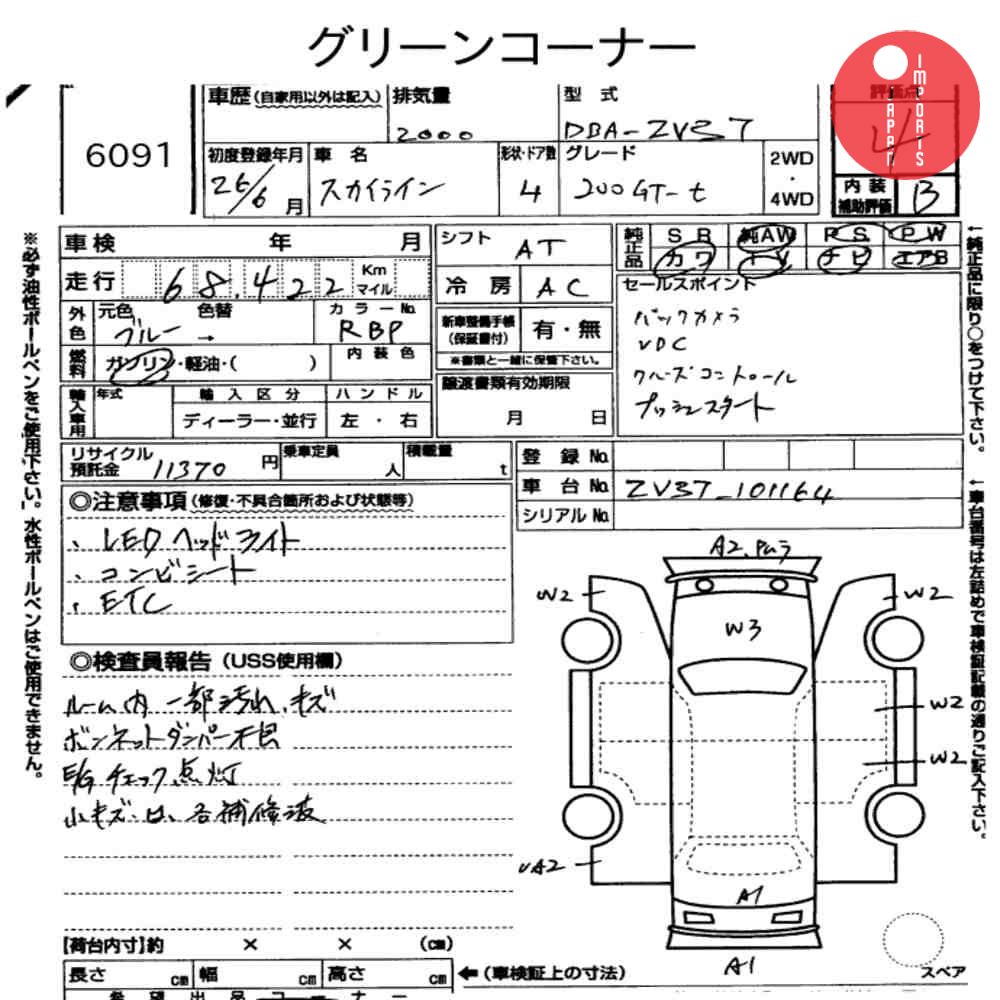 グリーンコーナー
JAPAN IMPORTS
6091
車歴(自家用以外は記入) 排気量 2000 型式 DBA-ZV37 評価点 4
初度登録年月 26/6月 車名 スカイライン 形状・ドア数 4 グレード 200GT-t 2WD・4WD 内装補助評価 B
車検 年 月 シフト AT 純正品 SR 純AW PS PW
カワ TV ナビ エアB
走行 68,422 Km マイル 冷房 AC セールスポイント
外色 元色 ブルー 色替 → カラーNo. RBP 新車整備手帳(保証書付) 有・無
※書類と一緒に保管下さい。
バックカメラ
VDC
クルーズコントロール
プッシュスタート
燃料 ガソリン・軽油・( ) 内装色
譲渡書類有効期限 月 日
輸入車用 年式 輸入区分 ハンドル
ディーラー・並行 左・右
リサイクル預託金 11370円 乗車定員 人 積載量 t
登録No.
車台No. ZV37-101164
シリアルNo.
◎注意事項(修復・不具合箇所および状態等)
、LEDヘッドライト
、コンビシート
、ETC
◎検査員報告(USS使用欄)
ルーム内 一部汚れ、キズ
ボンネットダンパー不良
E/Gチェック点灯
小キズ・凹、各補修波
A2、Pムラ
W2
W2
W3
W2
W2
VA2
A1
A1
スペア
【荷台内寸】約 × × (cm)
長さ cm 幅 cm 高さ cm ←(車検証上の寸法)
希望出品コーナー
※必ず油性ボールペンをご使用下さい。水性ボールペンはご使用できません。
←純正品に限り○をつけて下さい。
←車台番号は左詰めで車検証記載の通りご記入下さい。